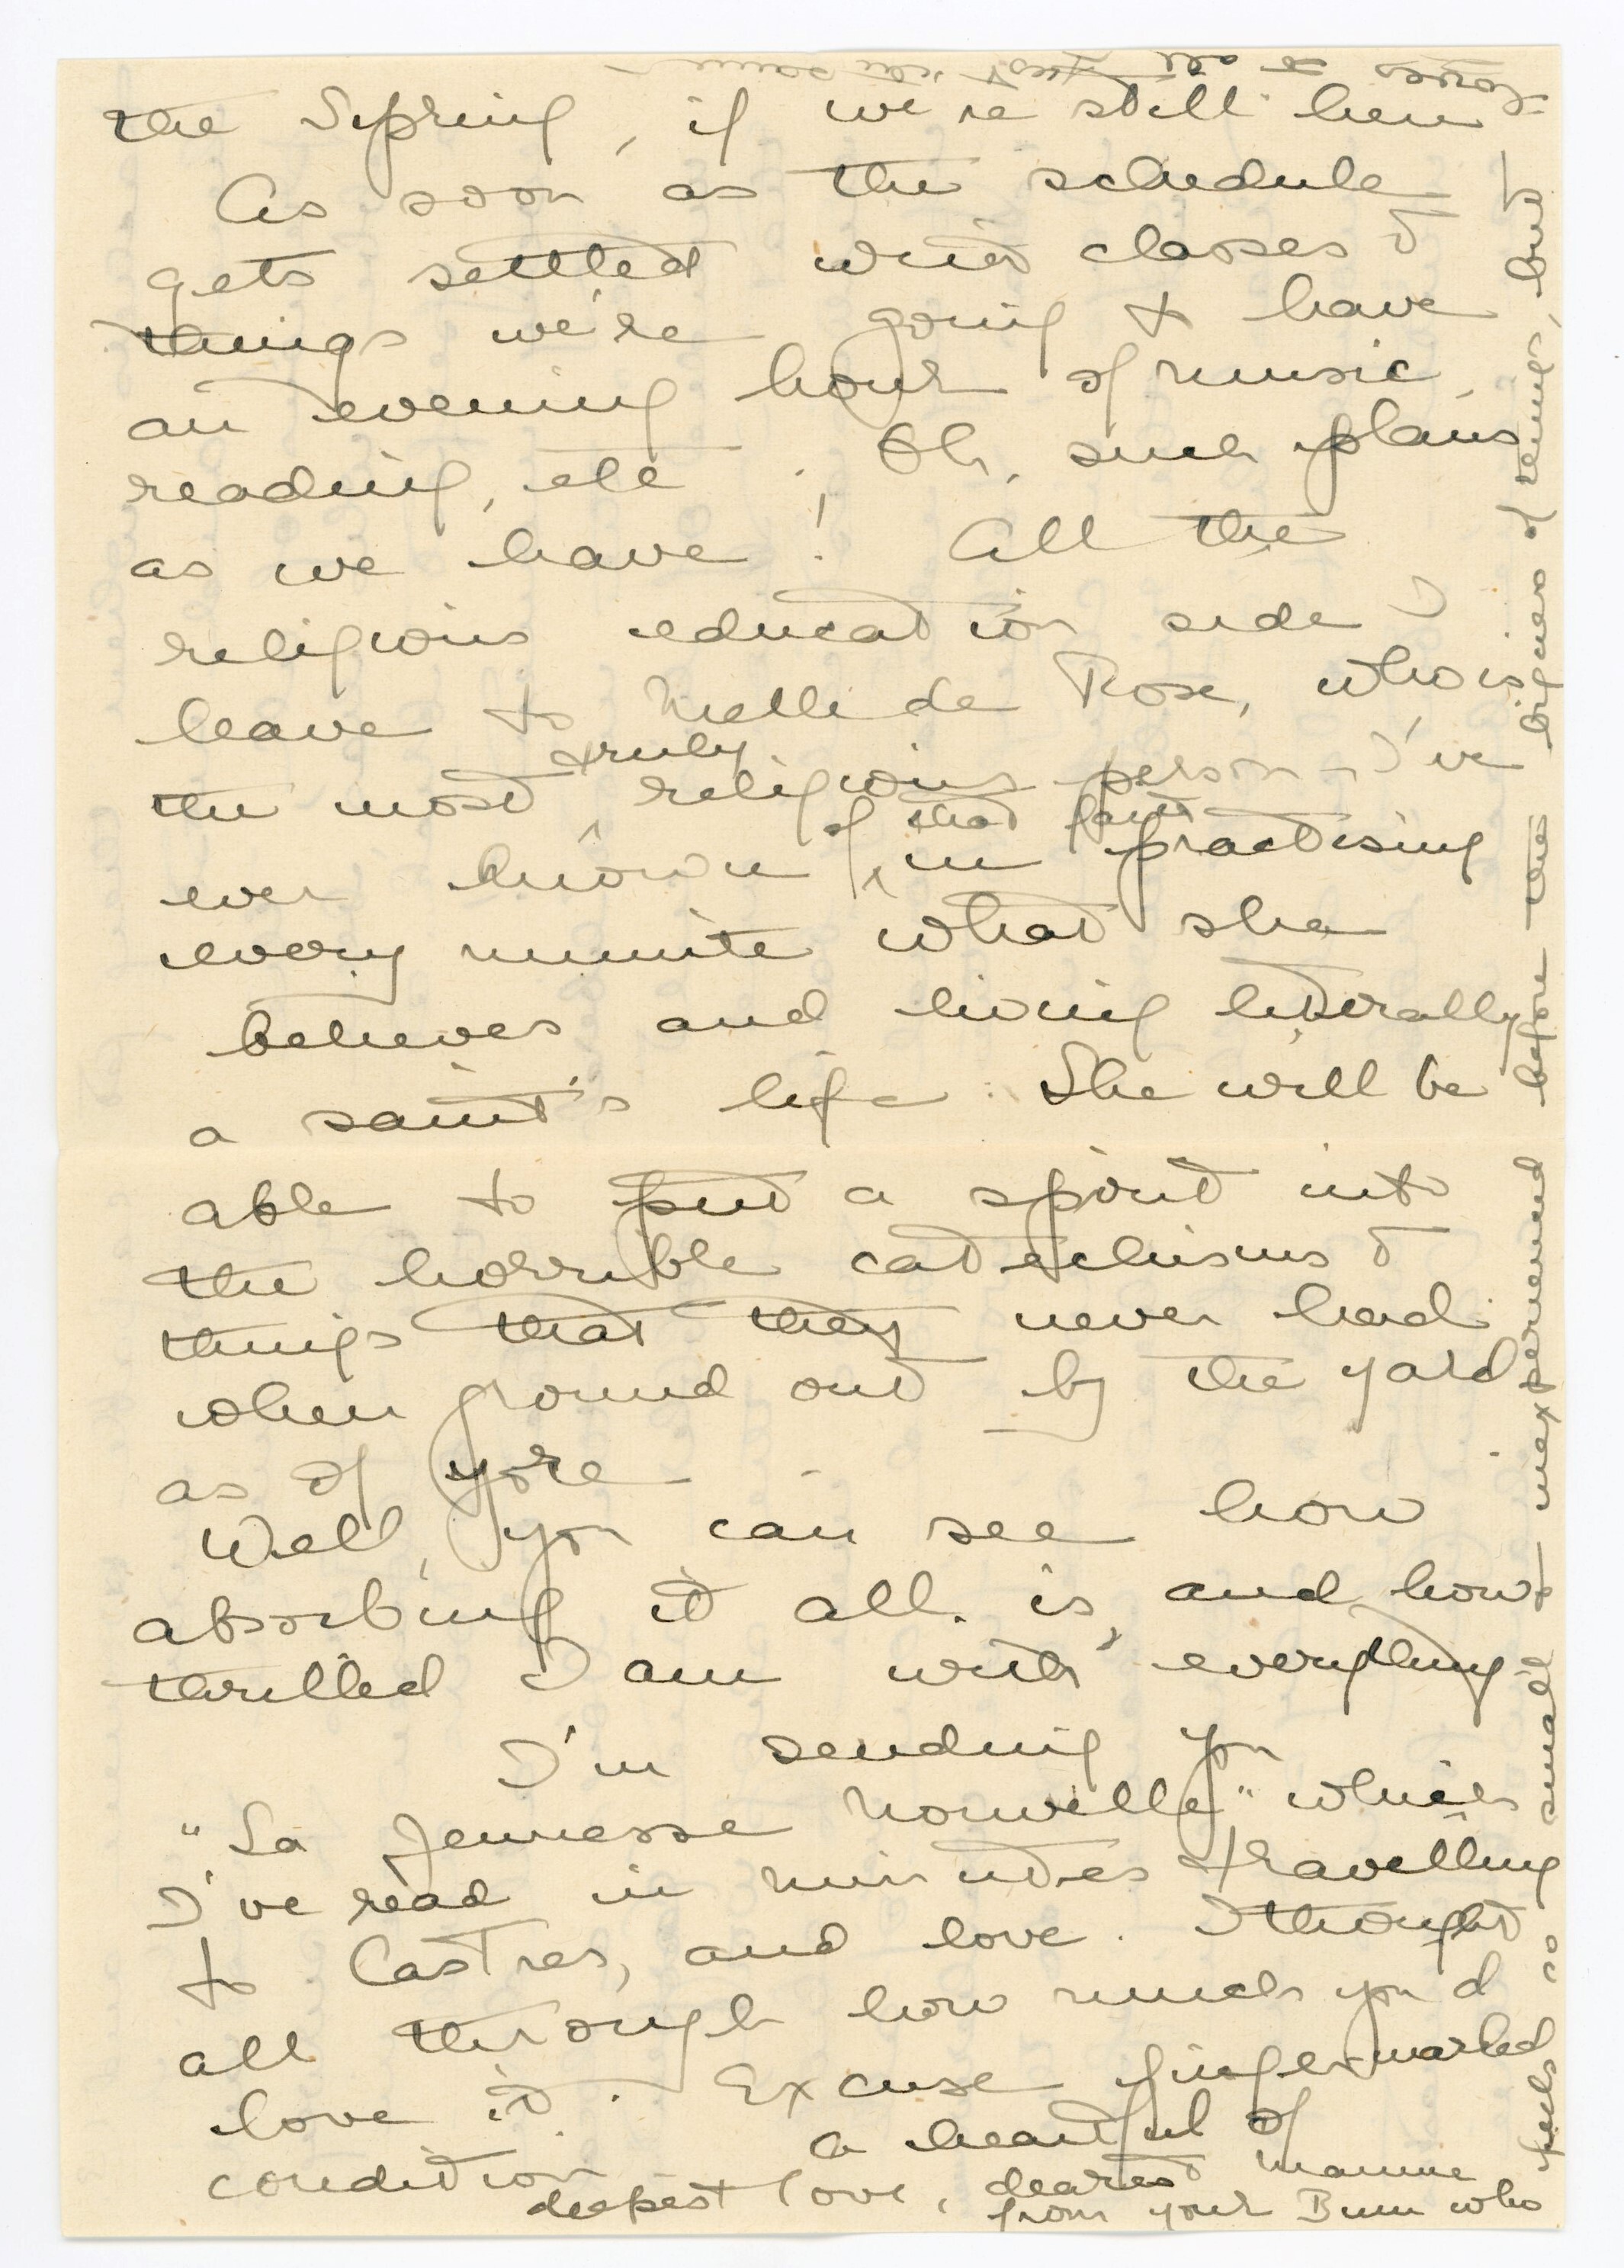 the Spring, if we're still here
As soon as the schedule
gets settled with classes &
things we're going to have
an evening hour of music,
reading, etc. Oh, such plans
as we have! All the
religious education side I
leave to Mlle de Rose, who is
the most truly religious person I've
ever known, of that faith in practising
every minute what she
believes and living literally
a saint's life. She will be
able to put a spirit into
the horrible catechisms &
things that they never had
when ground out by the yard
as of yore
Well, you can see how
absorbing it all is, and how
thrilled I am with everything
I'm sending you
"La Jeunesse Nouvelle" which
I've read in minutes travelling
to Castres, and love. I thought
all through how much you'd
love it. Excuse fingermarked
condition
a heartful of
deepest love, dearest Mamma
from your Bun who
feels so small & inexperienced before the bigness of things, but
loves it all just the same